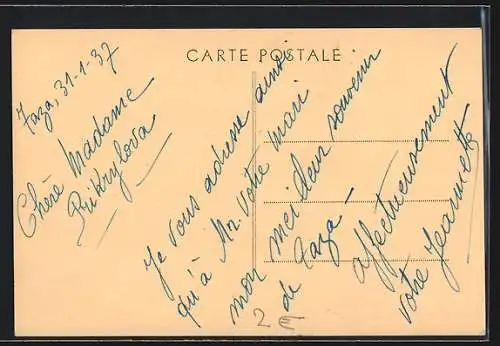 CARTE POSTALE
Taza, 31-1-37
Chère Madame
Prikrylova
Je vous adresse ainsi
qu'à Mr. Votre mari
mon meilleur souvenir
de Taza –
affectueusement
votre Jeannette
2€